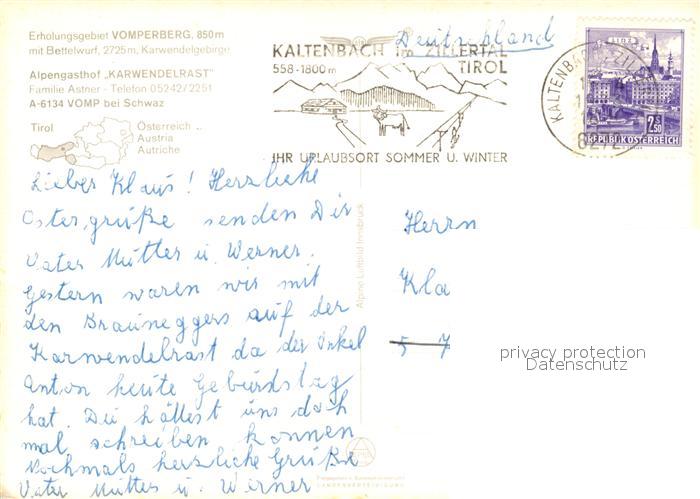 Erholungsgebiet VOMPERBERG, 850m
mit Bettelwurf, 2725m, Karwendelgebirge
Alpengasthof „KARWENDELRAST"
Familie Astner - Telefon 05242/2251
A-6134 VOMP bei Schwaz
Tirol
Österreich
Austria
Autriche
Deutschland
KALTENBACH im ZILLERTAL
558-1800m TIROL
IHR URLAUBSORT SOMMER U. WINTER
KALTENBACH
LINZ
2.50
REPUBLIK ÖSTERREICH
Lieber Klaus! Herzliche
Ostergrüße senden Dir
Vater Mutter u. Werner.
Gestern waren wir mit
den Brauneggers auf der
Karwendelrast da der Onkel
Anton heute Geburdstag
hat. Du hättest uns doch
mal schreiben konnen
Nochmals herzliche Grüße
Vater Mutter u. Werner
Alpine Luftbild Innsbruck
Herrn
Kla
5 7
privacy protection
Datenschutz